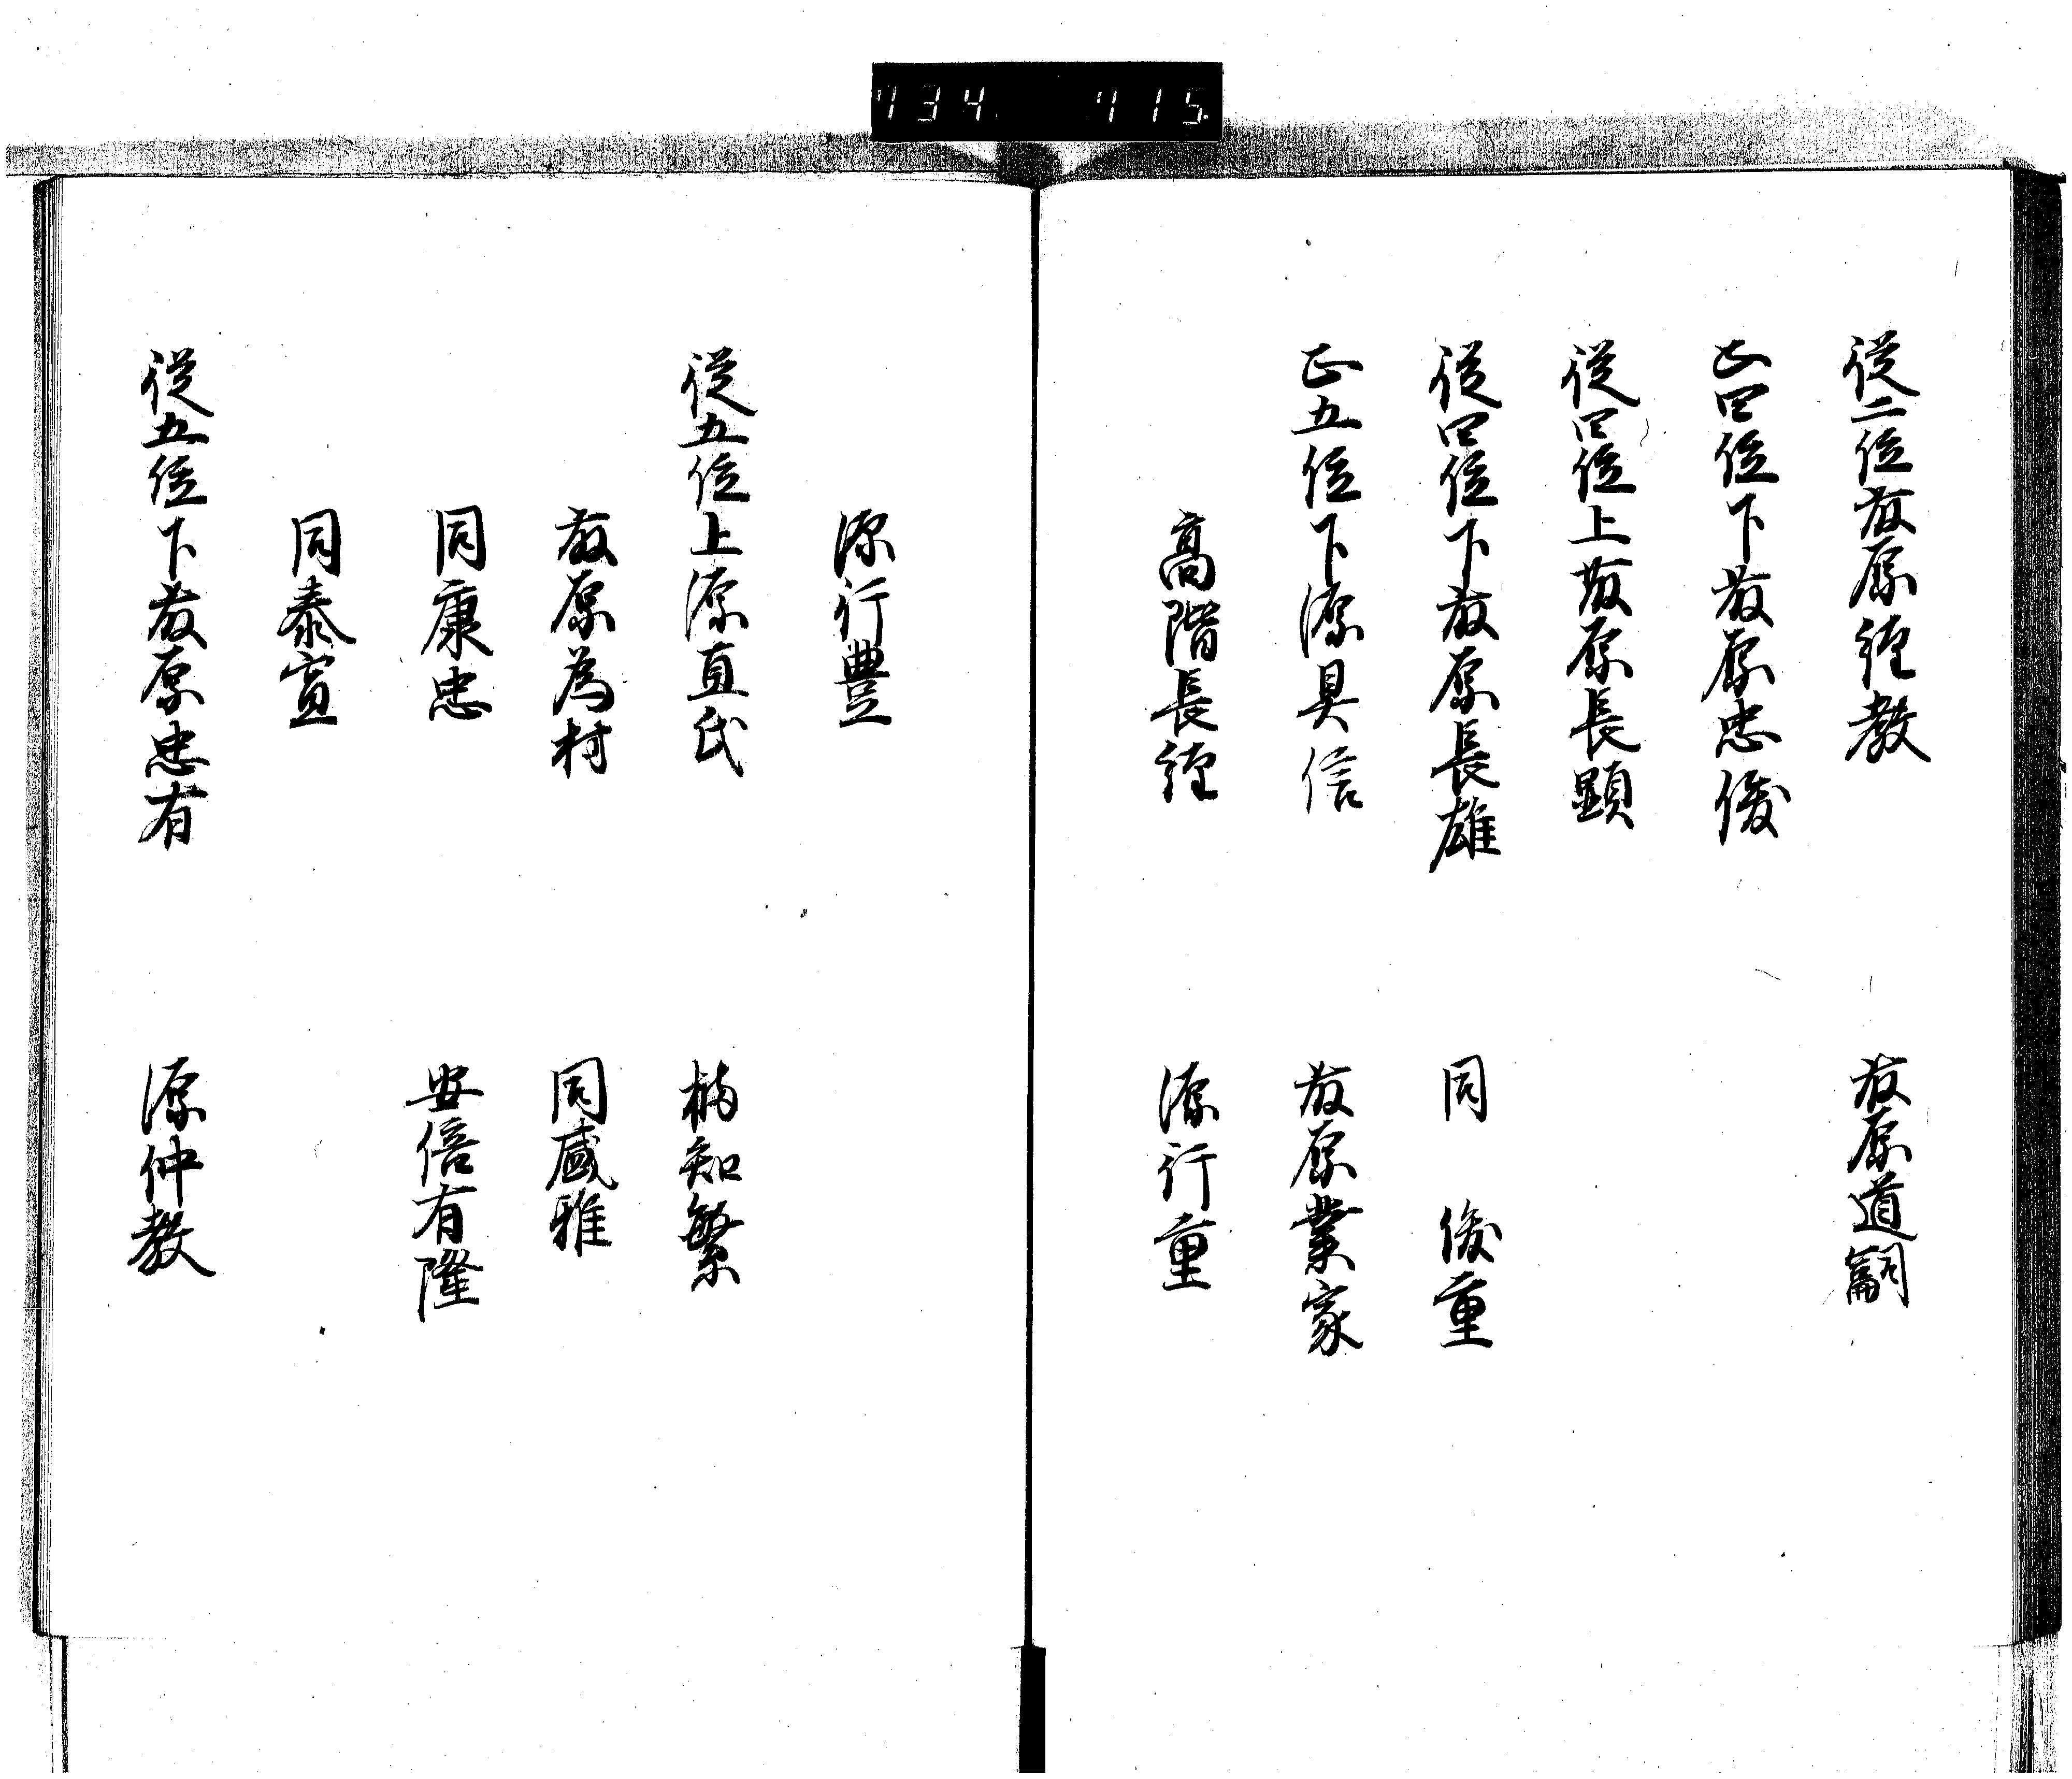 734 715
従二位藤原経教 藤原道嗣
正四位下藤原忠俊
従四位上藤原長顕
従四位下藤原長雄 同 俊重
正五位下源具信 藤原業家
高階長経 源行重
源行豊
従五位上源直氏 楠知繁
藤原為村 同盛雅
同康忠 安倍有隆
同泰宣
従五位下藤原忠有 源仲教